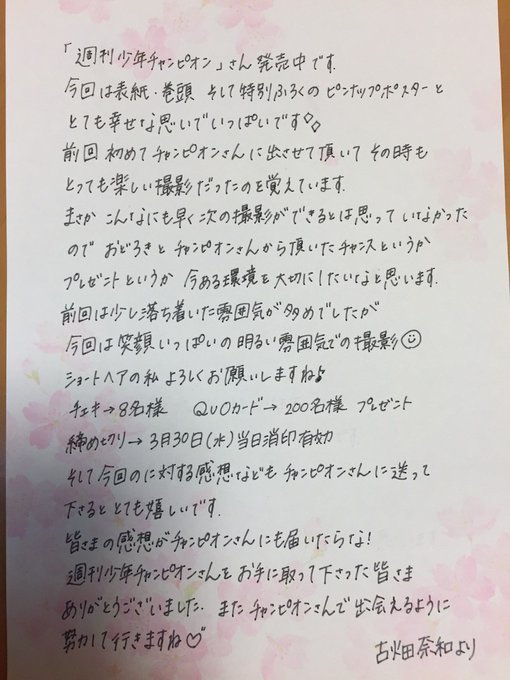 「週刊少年チャンピオン」さん発売中です.
今回は表紙・巻頭 そして特別ふろくのピンナップポスターと
とても幸せな思いでいっぱいです
前回初めてチャンピオンさんに出させて頂いてその時も
とっても楽しい撮影だったのを覚えています.
まさかこんなにも早く次の撮影ができるとは思っていなかった
ので おどろきとチャンピオンさんから頂いたチャンスというか
プレゼントというか 今ある環境を大切にしたいなと思います.
前回は少し落ち着いた雰囲気が多めでしたが
今回は笑顔いっぱいの明るい雰囲気での撮影☺
ショートヘアの私 よろしくお願いしますね♪
チェキ→8名様 QUOカード→200名様 プレゼント
締め切り→3月30日(水)当日消印有効
そして今回のに対する感想などもチャンピオンさんに送って
下さるととても嬉しいです.
皆さまの感想がチャンピオンさんにも届いたらな!
週刊少年チャンピオンさんをお手に取って下さった皆さま
ありがとうございました. またチャンピオンさんで出会えるように
努力して行きますね♡
古畑奈和より